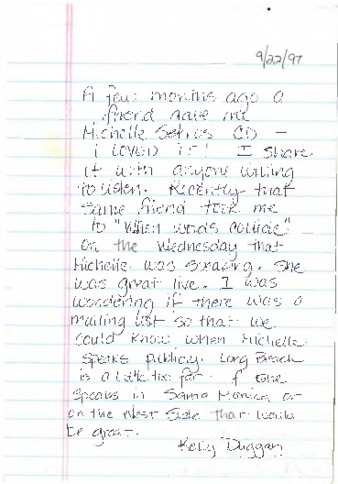 9/22/97
A few months ago a
friend gave me
Michelle Serros CD -
i LOVED it! I share
it with anyone willing
to listen. Recently that
same friend took me
to "When words collide"
on the Wednesday that
Michelle was speaking. She
was great live. I was
wondering if there was a
mailing list so that we
could know when Michelle
speaks publicly. Long Beach
is a little too far. If she
speaks in Santa Monica or
on the West Side that would
be great.
Kelly Duggan